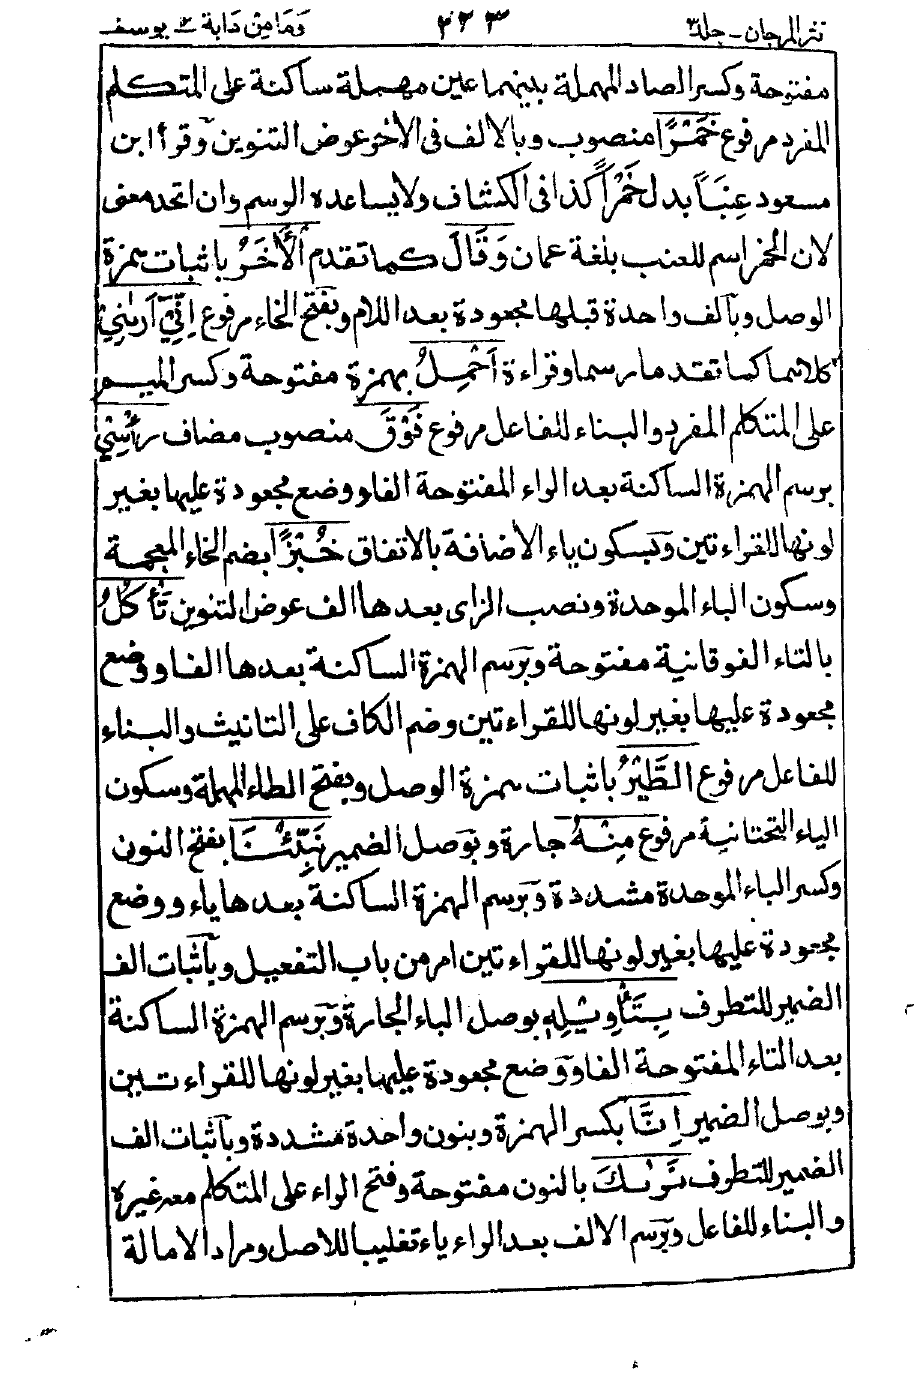 نثر المرجان - جلد ٣ ٢٢٣ وما من دابة ١٢ يوسف
مفتوحة وكسر الصاد المهملة بينهما عين مهملة ساكنة على المتكلم
المفرد مرفوع خَمْرًا منصوب وبالالف فى الأخر عوض التنوين وقرأ ابن
مسعود عِنَبًا بدل خَمْرًا كذا فى الكشاف ولا يساعده الرسم وان اتحد معنى
لان الخمر اسم للعنب بلغة عمان وَقَالَ كما تقدم الْأٰخَرُ باثبات همزة
الوصل وبالف واحدة قبلها مجعودة بعد اللام وبفتح الخاء مرفوع اِنِّيٓ اَرٰىنِيٓ
كلاهما كما تقدما رسما وقراءة اَحْمِلُ بهمزة مفتوحة وكسر الميم
على المتكلم المفرد والبناء للفاعل مرفوع فَوْقَ منصوب مضاف رَأْسِيْ
برسم الهمزة الساكنة بعد الراء المفتوحة الفا ووضع مجعودة عليها بغير
لونها للقراءتين وبسكون ياء الاضافة بالاتفاق خُبْزًا بضم الخاء المعجمة
وسكون الباء الموحدة ونصب الزاى بعدها الف عوض التنوين تَأْكُلُ
بالتاء الفوقانية مفتوحة وبرسم الهمزة الساكنة بعدها الفا ووضع
مجعودة عليها بغير لونها للقراءتين وضم الكاف على التانيث والبناء
للفاعل مرفوع الطَّيْرُ باثبات همزة الوصل وبفتح الطاء المهملة وسكون
الياء التحتانية مرفوع مِنْهُ جارة وبوصل الضمير نَبِّئْنَا بفتح النون
وكسر الباء الموحدة مشددة وبرسم الهمزة الساكنة بعدها ياء ووضع
مجعودة عليها بغير لونها للقراءتين امر من باب التفعيل وباثبات الف
الضمير للتطرف بِتَأْوِيْلِهٖ بوصل الباء الجارة وبرسم الهمزة الساكنة
بعد التاء المفتوحة الفا ووضع مجعودة عليها بغير لونها للقراءتين
وبوصل الضمير اِنَّا بكسر الهمزة وبنون واحدة مشددة وباثبات الف
الضمير للتطرف نَرٰىكَ بالنون مفتوحة وفتح الراء على المتكلم معه غيره
والبناء للفاعل وبرسم الالف بعد الراء ياء تغليبا للاصل ومراد الامالة